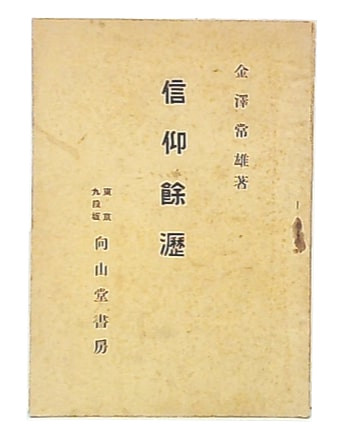 金澤常雄著
信仰餘瀝
東京
九段坂
向山堂書房